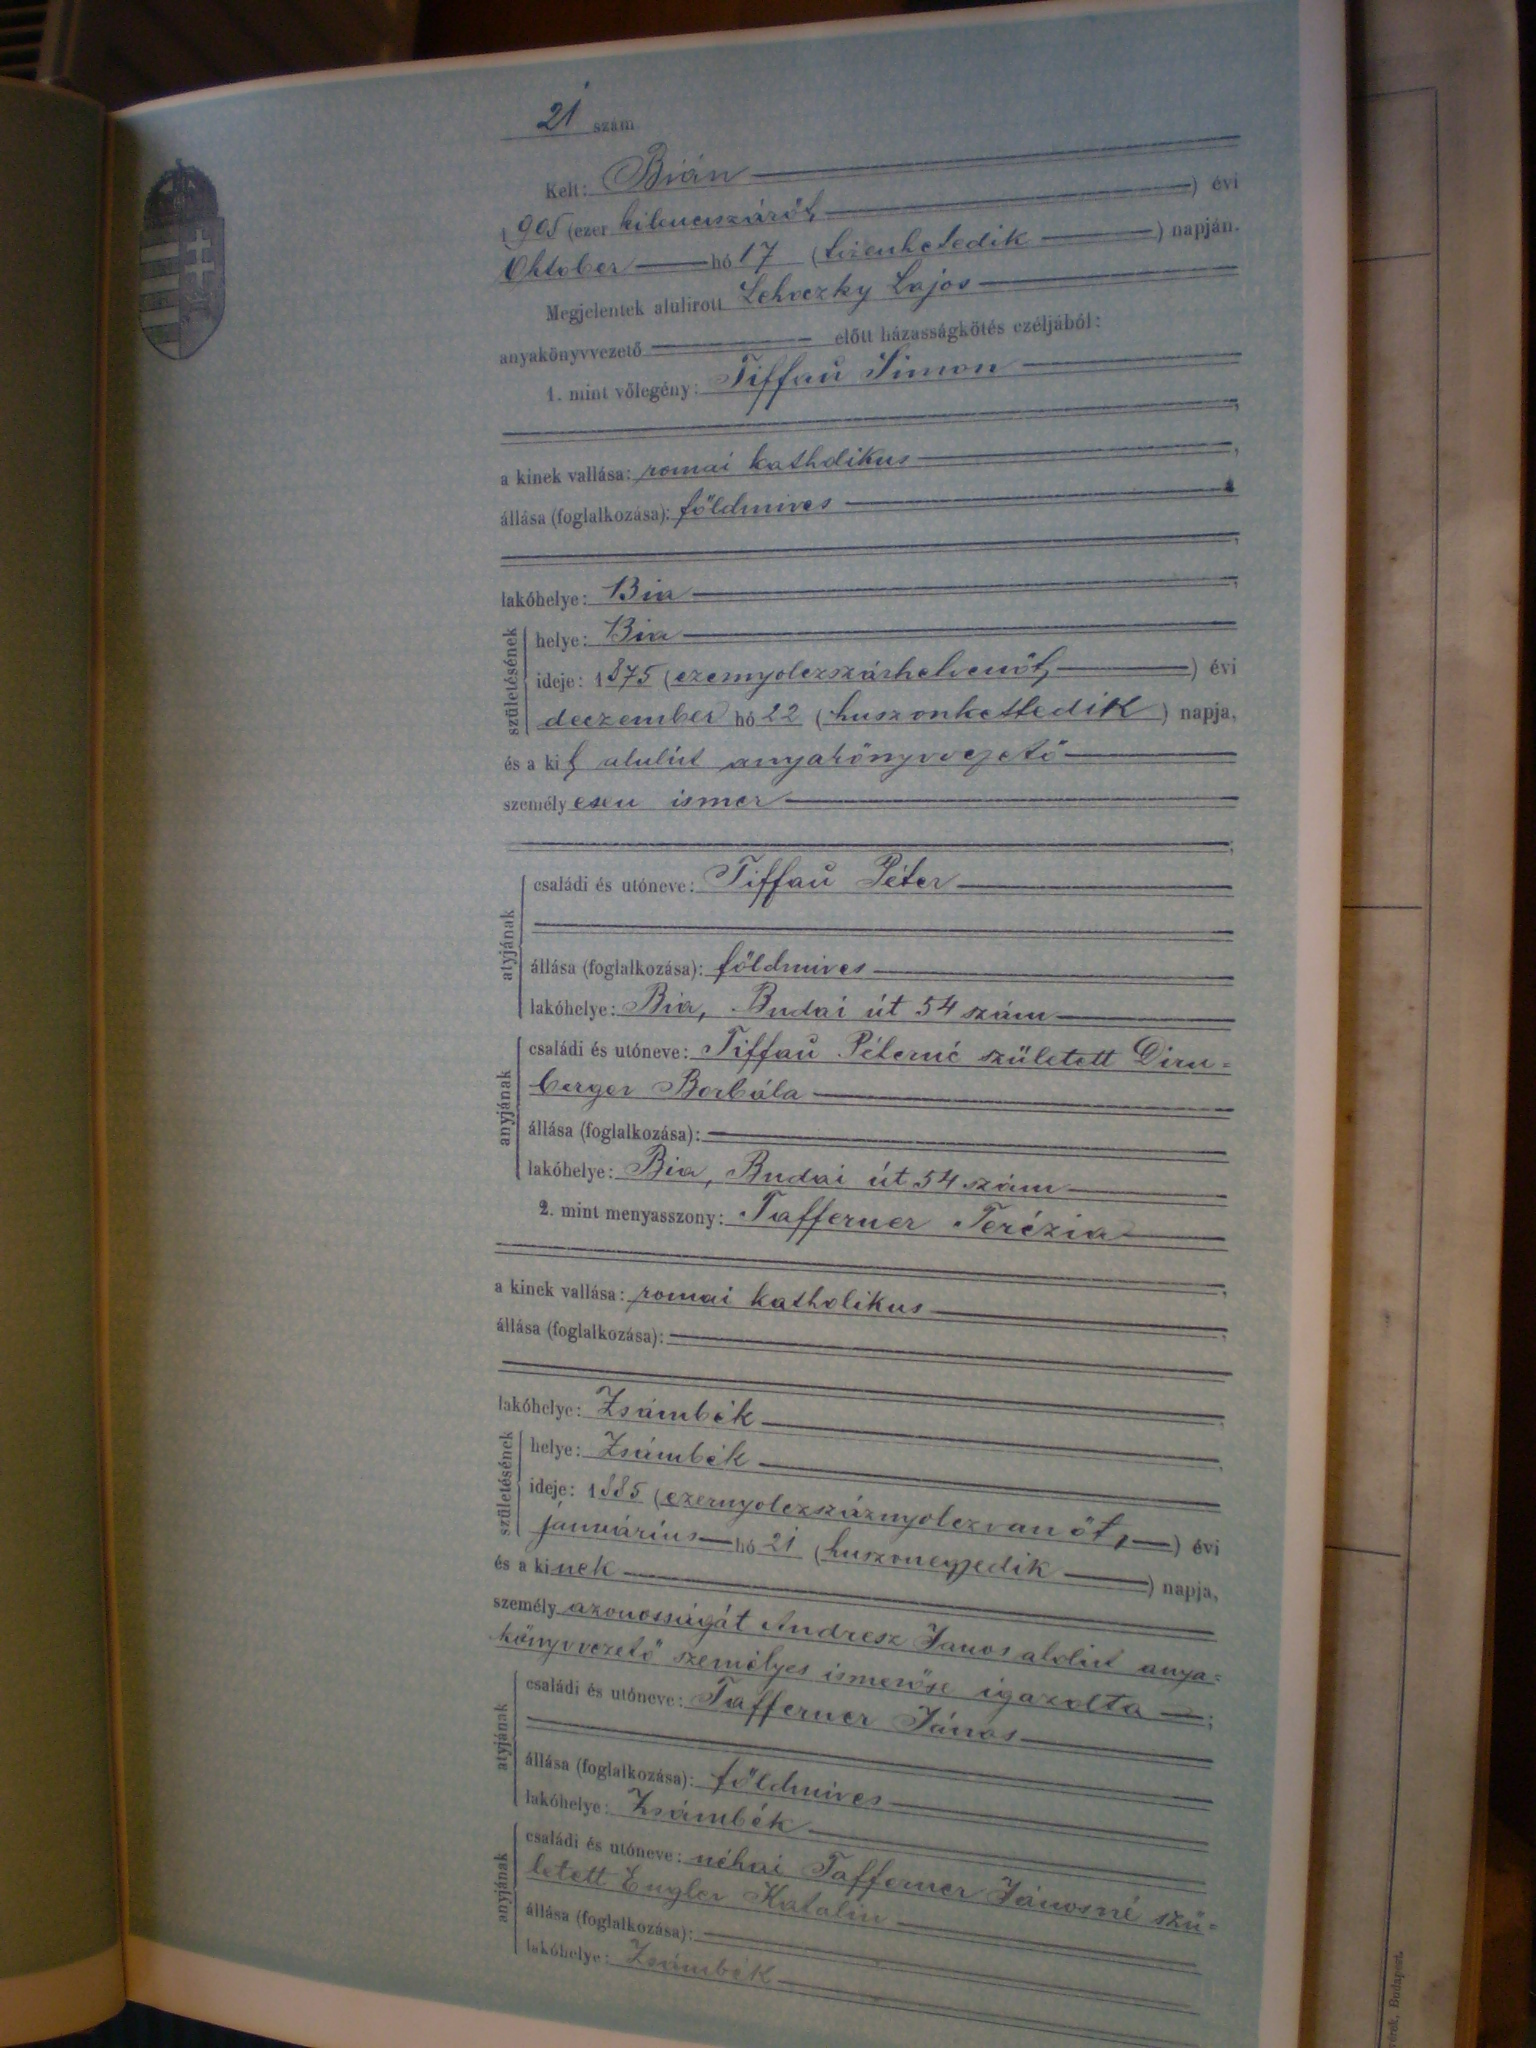 21 szám
Kelt: Bián
1905 (ezer kilenczszáröt,) évi
Október hó 17 (tizenhetedik) napján.
Megjelentek alulirott Lehoczky Lajos
anyakönyvvezető előtt házasságkötés czéljából:
1. mint vőlegény: Tiffaŭ Simon
a kinek vallása: romai katholikus
állása (foglalkozása): földmives
lakóhelye: Bia
születésének
helye: Bia
ideje: 1875 (ezernyolczszázhetvenöt,) évi
deczember hó 22 (huszonkettedik) napja,
és a kit alulirt anyakönyvvezető
személyesen ismer
atyjának
családi és utóneve: Tiffaŭ Péter
állása (foglalkozása): földmives
lakóhelye: Bia, Budai út 54 szám
anyjának
családi és utóneve: Tiffaŭ Péterné született Dirn=
berger Borbála
állása (foglalkozása):
lakóhelye: Bia, Budai út 54 szám
2. mint menyasszony: Tafferner Terézia
a kinek vallása: romai katholikus
állása (foglalkozása):
lakóhelye: Zsámbék
születésének
helye: Zsámbék
ideje: 1885 (ezernyolczszáznyolczvanöt,) évi
január­ius hó 21 (huszonegyedik) napja,
és a kinek
személyazonosságát Andresz Janos alolirt anya=
könyvvezető személyes ismerőse igazolta;
atyjának
családi és utóneve: Tafferner János
állása (foglalkozása): földmives
lakóhelye: Zsámbék
anyjának
családi és utóneve: néhai Tafferner Jánosné szü=
letett Engler Katalin
állása (foglalkozása):
lakóhelye: Zsámbék
Budapest.